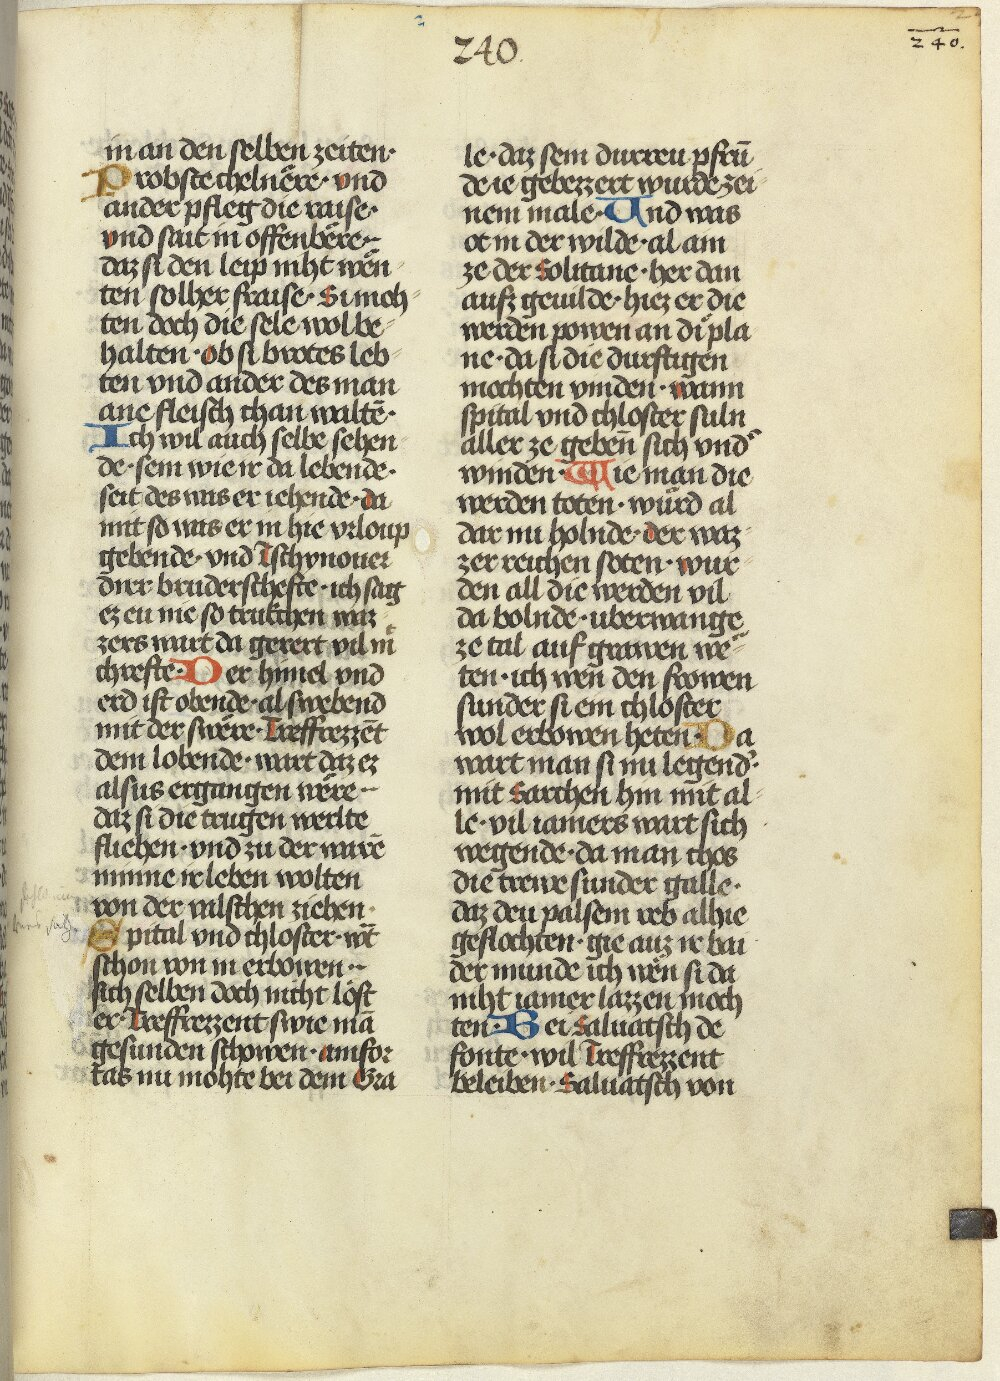 240.
240.
in an den selben zeiten·
Probste chelnere· vnd
ander pfleg die raise·
vnd sait in offenbere··
daz si den leip niht wen
ten solher fraise· Si moh
ten doch die sele wol be
halten· ob si brotes leb
ten vnd ander des man
ane fleisch chan waltē·
Ich wil auch selbe sehen
de· sein wie ir da lebende·
seit des was er iehende· da
mit so was er in hie vrloup
gebende· vnd Tschynouer
diner bruderschefte· ich sag
ez eu nie so trukchen waz
zers wart da gerert vil in
chrefte· Der himel vnd
erd ist obende· al swebend
mit der swere· Treffrezzēt
dem lobende· wart daz ez
alsus ergangen were··
daz si die trugen werlte
fliehen· vnd zu der warē
minne ir leben wolten
von der valschen ziehen·
Spital vnd chloster· wt
schon von in erbowen··
sich selben doch nicht löst
er Treffrezzent swie mā
gesunden schowen· amfor
tas nu mohte bei dem Gra
le· daz sein durreu pfrū
de ie gebezzert wurde zei
nem male· Und was
ot in der wilde· al am
ze der Solitane· her dan
auz geuilde· hiez er die
werden powen an di pla
ne· da si die durftigen
mochten vinden· wann
spital vnd chloster suln
aller ze geben sich vnd
winden· Wie man die
werden toten· würd al
dar nu holnde· der waz
zer reichen soten· wur
den all die werden vil
da bolnde· uberwange
ze tal auf grawen we
ten· ich wen den frowen
sunder si ein chloster
wol erbowen heten· Da
wart man si nu legend
mit Sarchen hin mit al
le· vil iamers wart sich
wegende· da man chos
die trewe sunder galle·
daz deu palsem reb alhie
geflochten· gie auz ir bai
der munde ich wen si da
niht iamer lazzen moch
ten· Bei Saluatsch de
fonte· wil Treffrezzent
beleiben· Saluatsch von